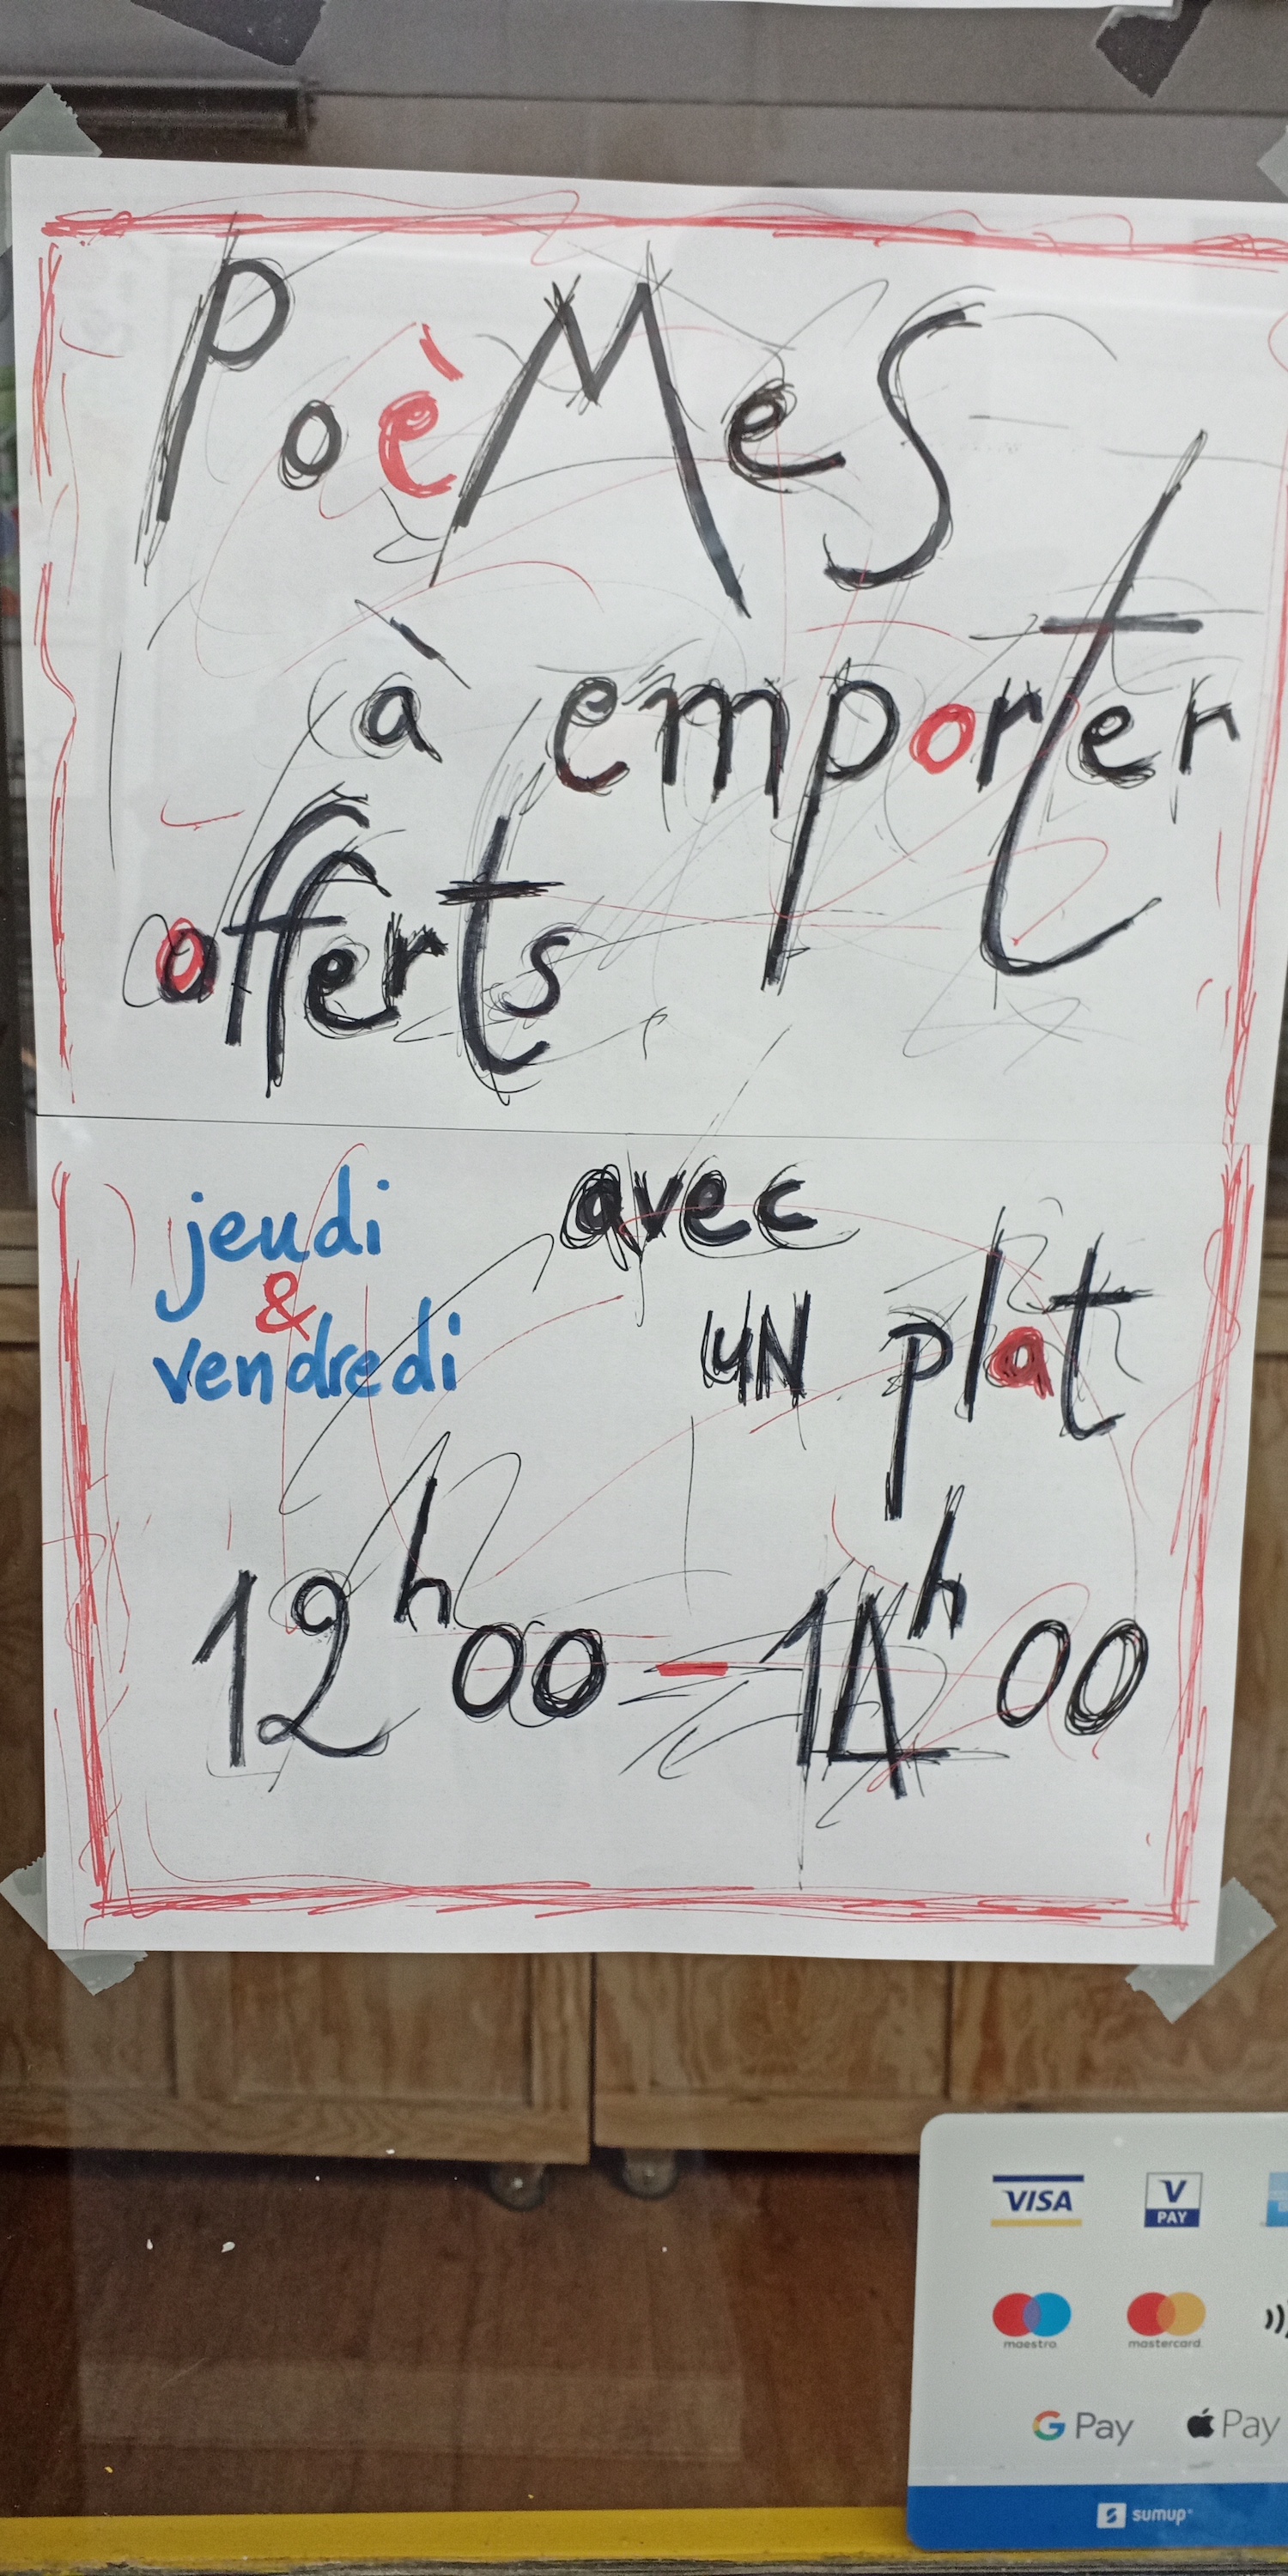 PoèMeS
à emporter
offerts
avec
jeudi
&
vendredi
uN plat
12h00 - 14h00
VISA
V PAY
maestro
mastercard
G Pay
Pay
sumup